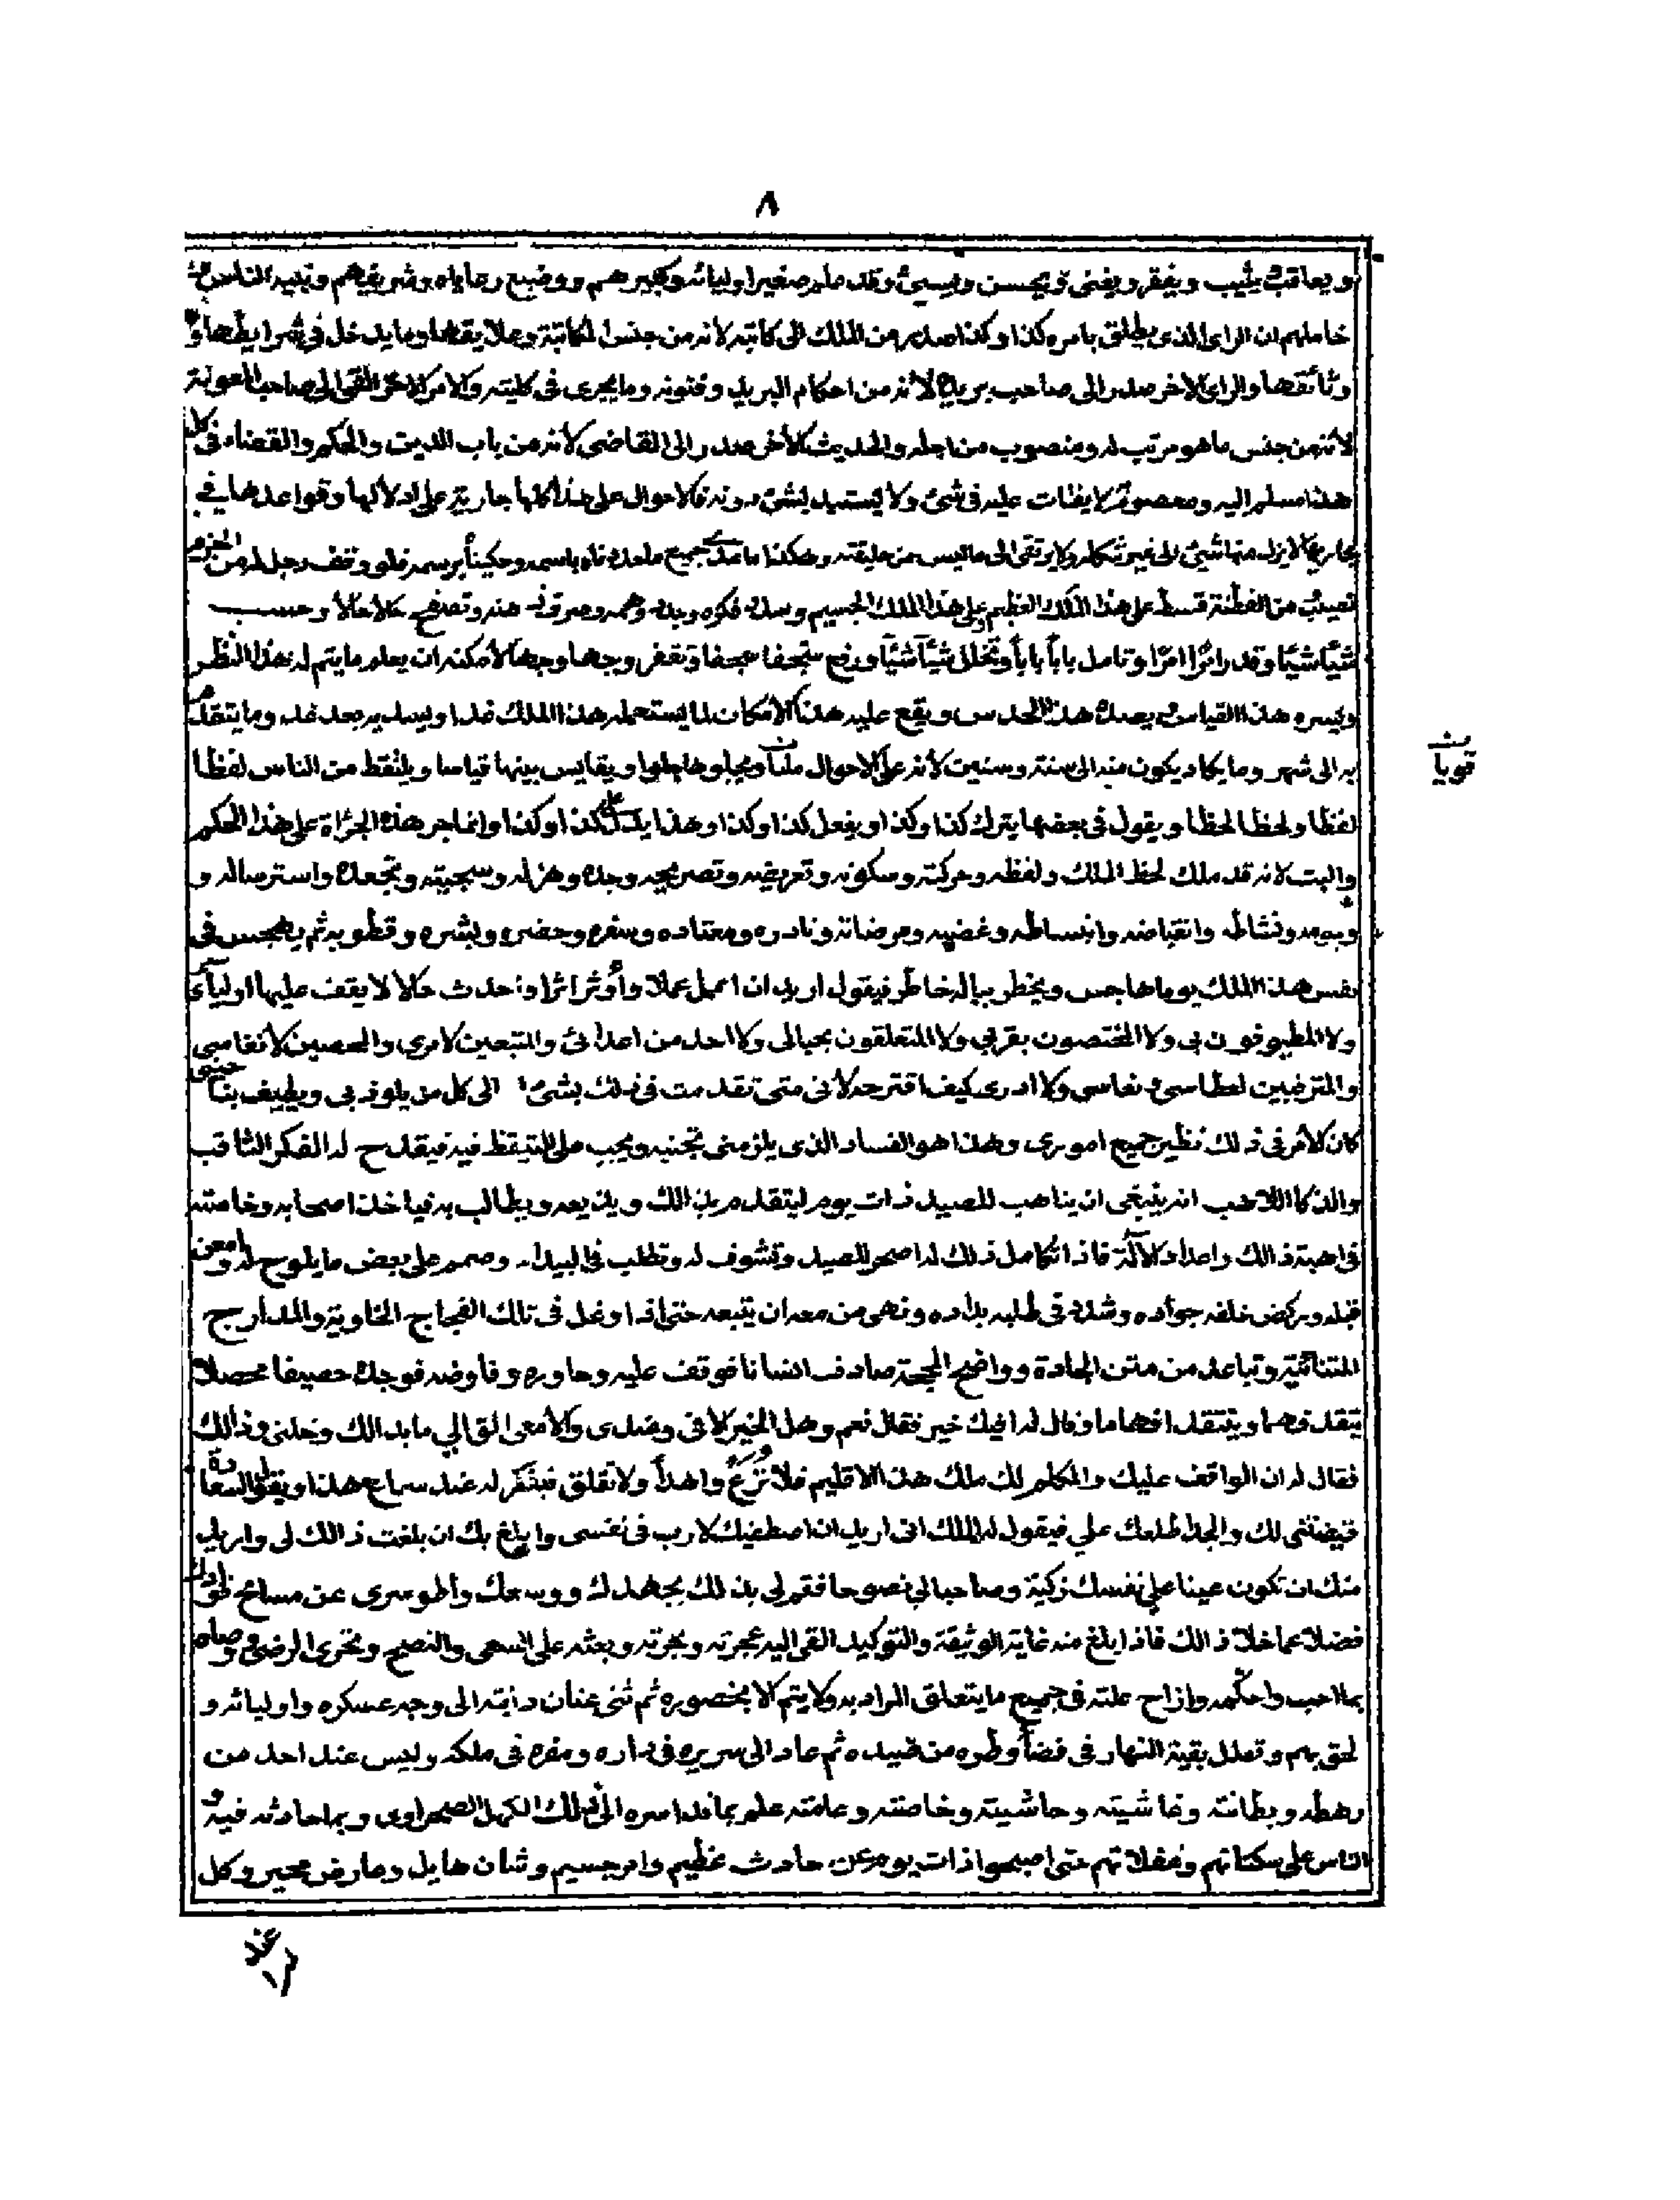 ٨
ويعاقب يثيب ويفقر ويغنى ويحسن ويسئ وقد علم صغير اوليائه وكبيرهم ووضيع رعاياه وشريفهم ونبيه الناس
خاملهم ان الراى الذى يطلق بامره كذا وكذا صدر من الملك الى كاتبه لانه من جنس الكتابة وعلايقها وما يدخل فى شرايطها و
وثائقها والراى الاخر صدر الى صاحب بريده لانه من احكام البريد وفنونه وما يجرى فى كليته والامر الاخر القى الى صاحب المعونة
لانه من جنس ما هو مرتب له ومنصوب من اجله والحديث الأخر صدر الى القاضى لانه من باب الدين والحكم والقضاء فى كل
هذا مسلم اليه ومعصوب لا يفتات عليه فى شئ ولا يستبد بشئ دونه فالاحوال على هذا كلها جارية على ادلالها وقواعدها فى
مجاريها لا يزل منها شئ الى غير شكله ولا يرتقى الى ما ليس من طبقته وهكذا جميع ما عددناه باسمه وحكيناه برسمه فلو وقف رجل له من الحزم
نصيب من الفطنة قسط على هذا الملك العظيم على هذا الملك الجسيم وسدد فكره وهمه وصرف ذهنه وتصفح حالا حالا وحسب
شيئا شيئا وقدر امرا امرا وتامل بابا بابا وتخلل شيئا شيئا ورفع سجفا سجفا وتقفى وجها وجها لامكنه ان يعلم ما يتم له هذا النظر
ويسره هذا القياس ويصدق هذا الحدس ويقع عليه هذا الامكان لما يستعمله هذا الملك غدا ويبديه بعد غد وما يتقدم
به الى شهر وما يكاد يكون منه الى سنة وسنين لانه على الاحوال ويجلوها جلوا ويقايس بينها قياسا ويلتقط من الناس لفظا
لفظا ولحظا لحظا ويقول فى بعضها يترك كذا وكذا ويفعل كذا وكذا وهذا يدل على كذا وكذا وانما جر هذه الجرأة على هذا الحكم
والبت لانه قد ملك لحظ الملك ولفظه وحركته وسكونه وتعريضه وتصريحه وجده وهزله وسجيته وتجعده واسترساله و
وجومه ونشاطه وانقباضه وانبساطه وغضبه ومرضاته ونادره ومعتاده وسفره وحضره وبشره وقطوبه ثم يهجس فى
نفس هذا الملك يوما هاجس ويخطر بباله خاطر فيقول اريد ان اعمل عملا وأوثر اثرا واحدث حالا لا يقف عليها اوليائى
ولا المطيوفون بى ولا المختصون بقربى ولا المتعلقون بحبالى ولا احد من اعدائى والمتبعين لامرى والمحصين لانفاسى
والمترقبين لعطاسى ونعاسى ولا ادرى كيف اقترحه لانى متى تقدمت فى ذلك بشئ الى كل من يلوذ بى ويطيف بناحيتى
كان الامر فى ذلك نظير جميع امورى وهذا هو الفساد الذى يلزمنى تجنبه ويجب على التيقظ فيه فيقدح له الفكر الثاقب
والذكاء اللاهب انه ينبغى ان يتاهب للصيد ذات يوم ليتقدم بذالك ويذيعه ويطالب به فياخذ اصحابه وخاصته
فى اهبة ذالك واعداد الآلة فاذا تكامل ذلك له اصحر للصيد وتشوف له وتطلب فى البيداء وصمم على بعض ما يلوح له وامعن
قبله وركض خلفه جواده وشدد فى طلبه بداده ونهى من معه ان يتبعه حتى اذا اوغل فى تلك الفجاج الخاوية والمدارج
المتنائية وتباعد من متن الجادة وواضح المحجة صادف انسانا فوقف عليه وحاوره وفاوضه فوجده حصيفا محصلا
يتقد فهما ويتقد افهاما وقال له افيك خير فقال نعم وهل الخير الا فى وعندى والا معى الق الى ما بدا لك وخلنى وذالك
فقال له ان الواقف عليك والمكلم لك ملك هذا الاقليم فلا ترع واهدأ ولا تقلق فيكفر له عند سماع هذا ويقول السعادة
قيضتنى لك والجد اطلعك على فيقول له الملك انى اريد ان اصطفيك لارب فى نفسى وابلغ بك ان بلغت ذالك لى واريد
منك ان تكون عينا على نفسك زكية وصاحبا لى نصوحا فقم لى بذلك بجهدك ووسعك واطو سرى عن مسانح فؤادك
فضلا عما خلا ذالك فاذا بلغ منه غاية الوثيقة والتوكيد القى اليه عجره وبجره وبعثه على السعى والنصح وتحرى الرضى ووصاه
بما احب واحكمه وازاح علته فى جميع ما يتعلق المراد به ولا يتم الا بحضوره ثم ثنى عنان دابته الى وجه عسكره واوليائه و
لحق بهم وتعلل بقية النهار فى قضاء وطره من صيده ثم عاد الى سريره فى داره ومقره فى ملكه وليس عند احد من
رهطه وبطانته وغاشيته وحاشيته وخاصته وعامته علم بما قد اسره الى ذلك الكهل الصحراوى وبما حادثه فيه و
الناس على سكناتهم وغفلاتهم حتى اصبحوا ذات يوم عن حادث عظيم وامر جسيم وشان هايل وعارض محير وكل